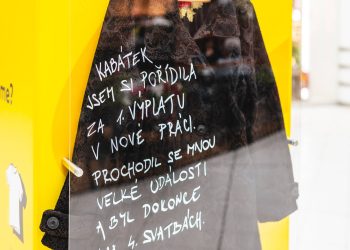 KABÁTEK
JSEM SI POŘÍDILA
ZA 1. VÝPLATU
V NOVÉ PRÁCI.
PROCHODIL SE MNOU
VELKÉ UDÁLOSTI
A BYL DOKONCE
4. SVATBÁCH.
me?